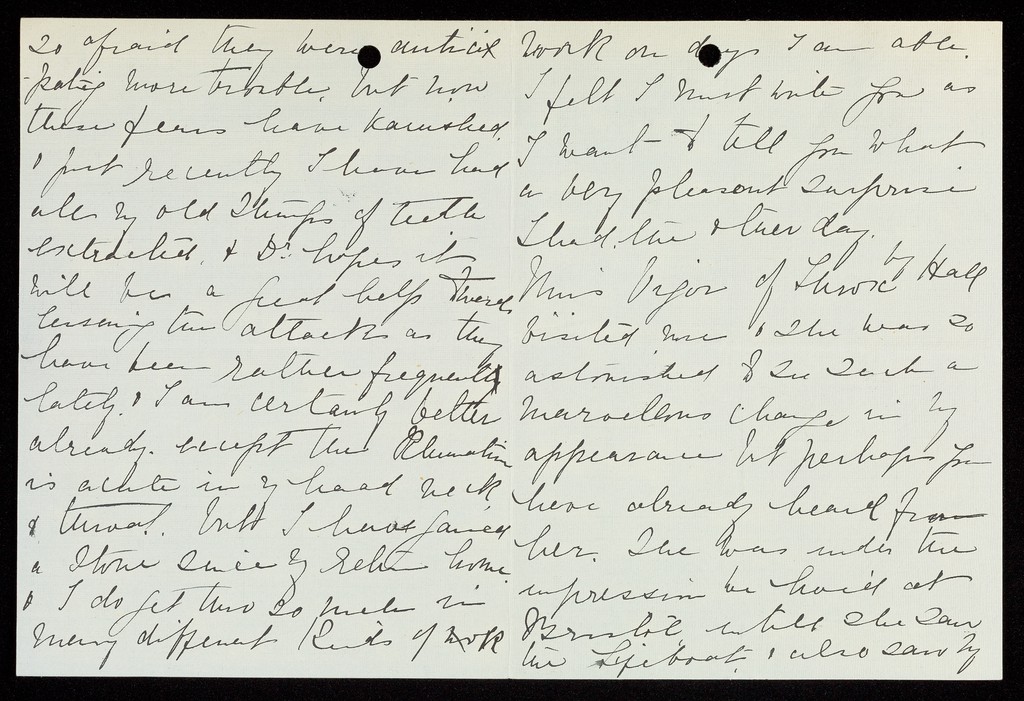 so afraid they were antici
-pating more trouble, but now
these fears have vanished,
& just recently I have had
all my old stumps of teeth
extracted, & Dr. hopes it
will be a great help towards
lessening the attacks as they
have been rather frequent
lately. & I am certainly better
already. except the Rheumatism
is acute in my head neck
& throat. but I have gained
a stone since my return home
& I do get thro so much in
many different kinds of work
work on days I am able.
I felt I must write you as
I want to tell you what
a very pleasant surprise
I had the other day.
Miss Vigor of by Hall
visited me & she was so
astonished to see such a
marvellous change in my
appearance but perhaps you
have already heard from
her. She was under the
impression we lived at
Bristol, until she saw
the Lifeboat, & also saw my